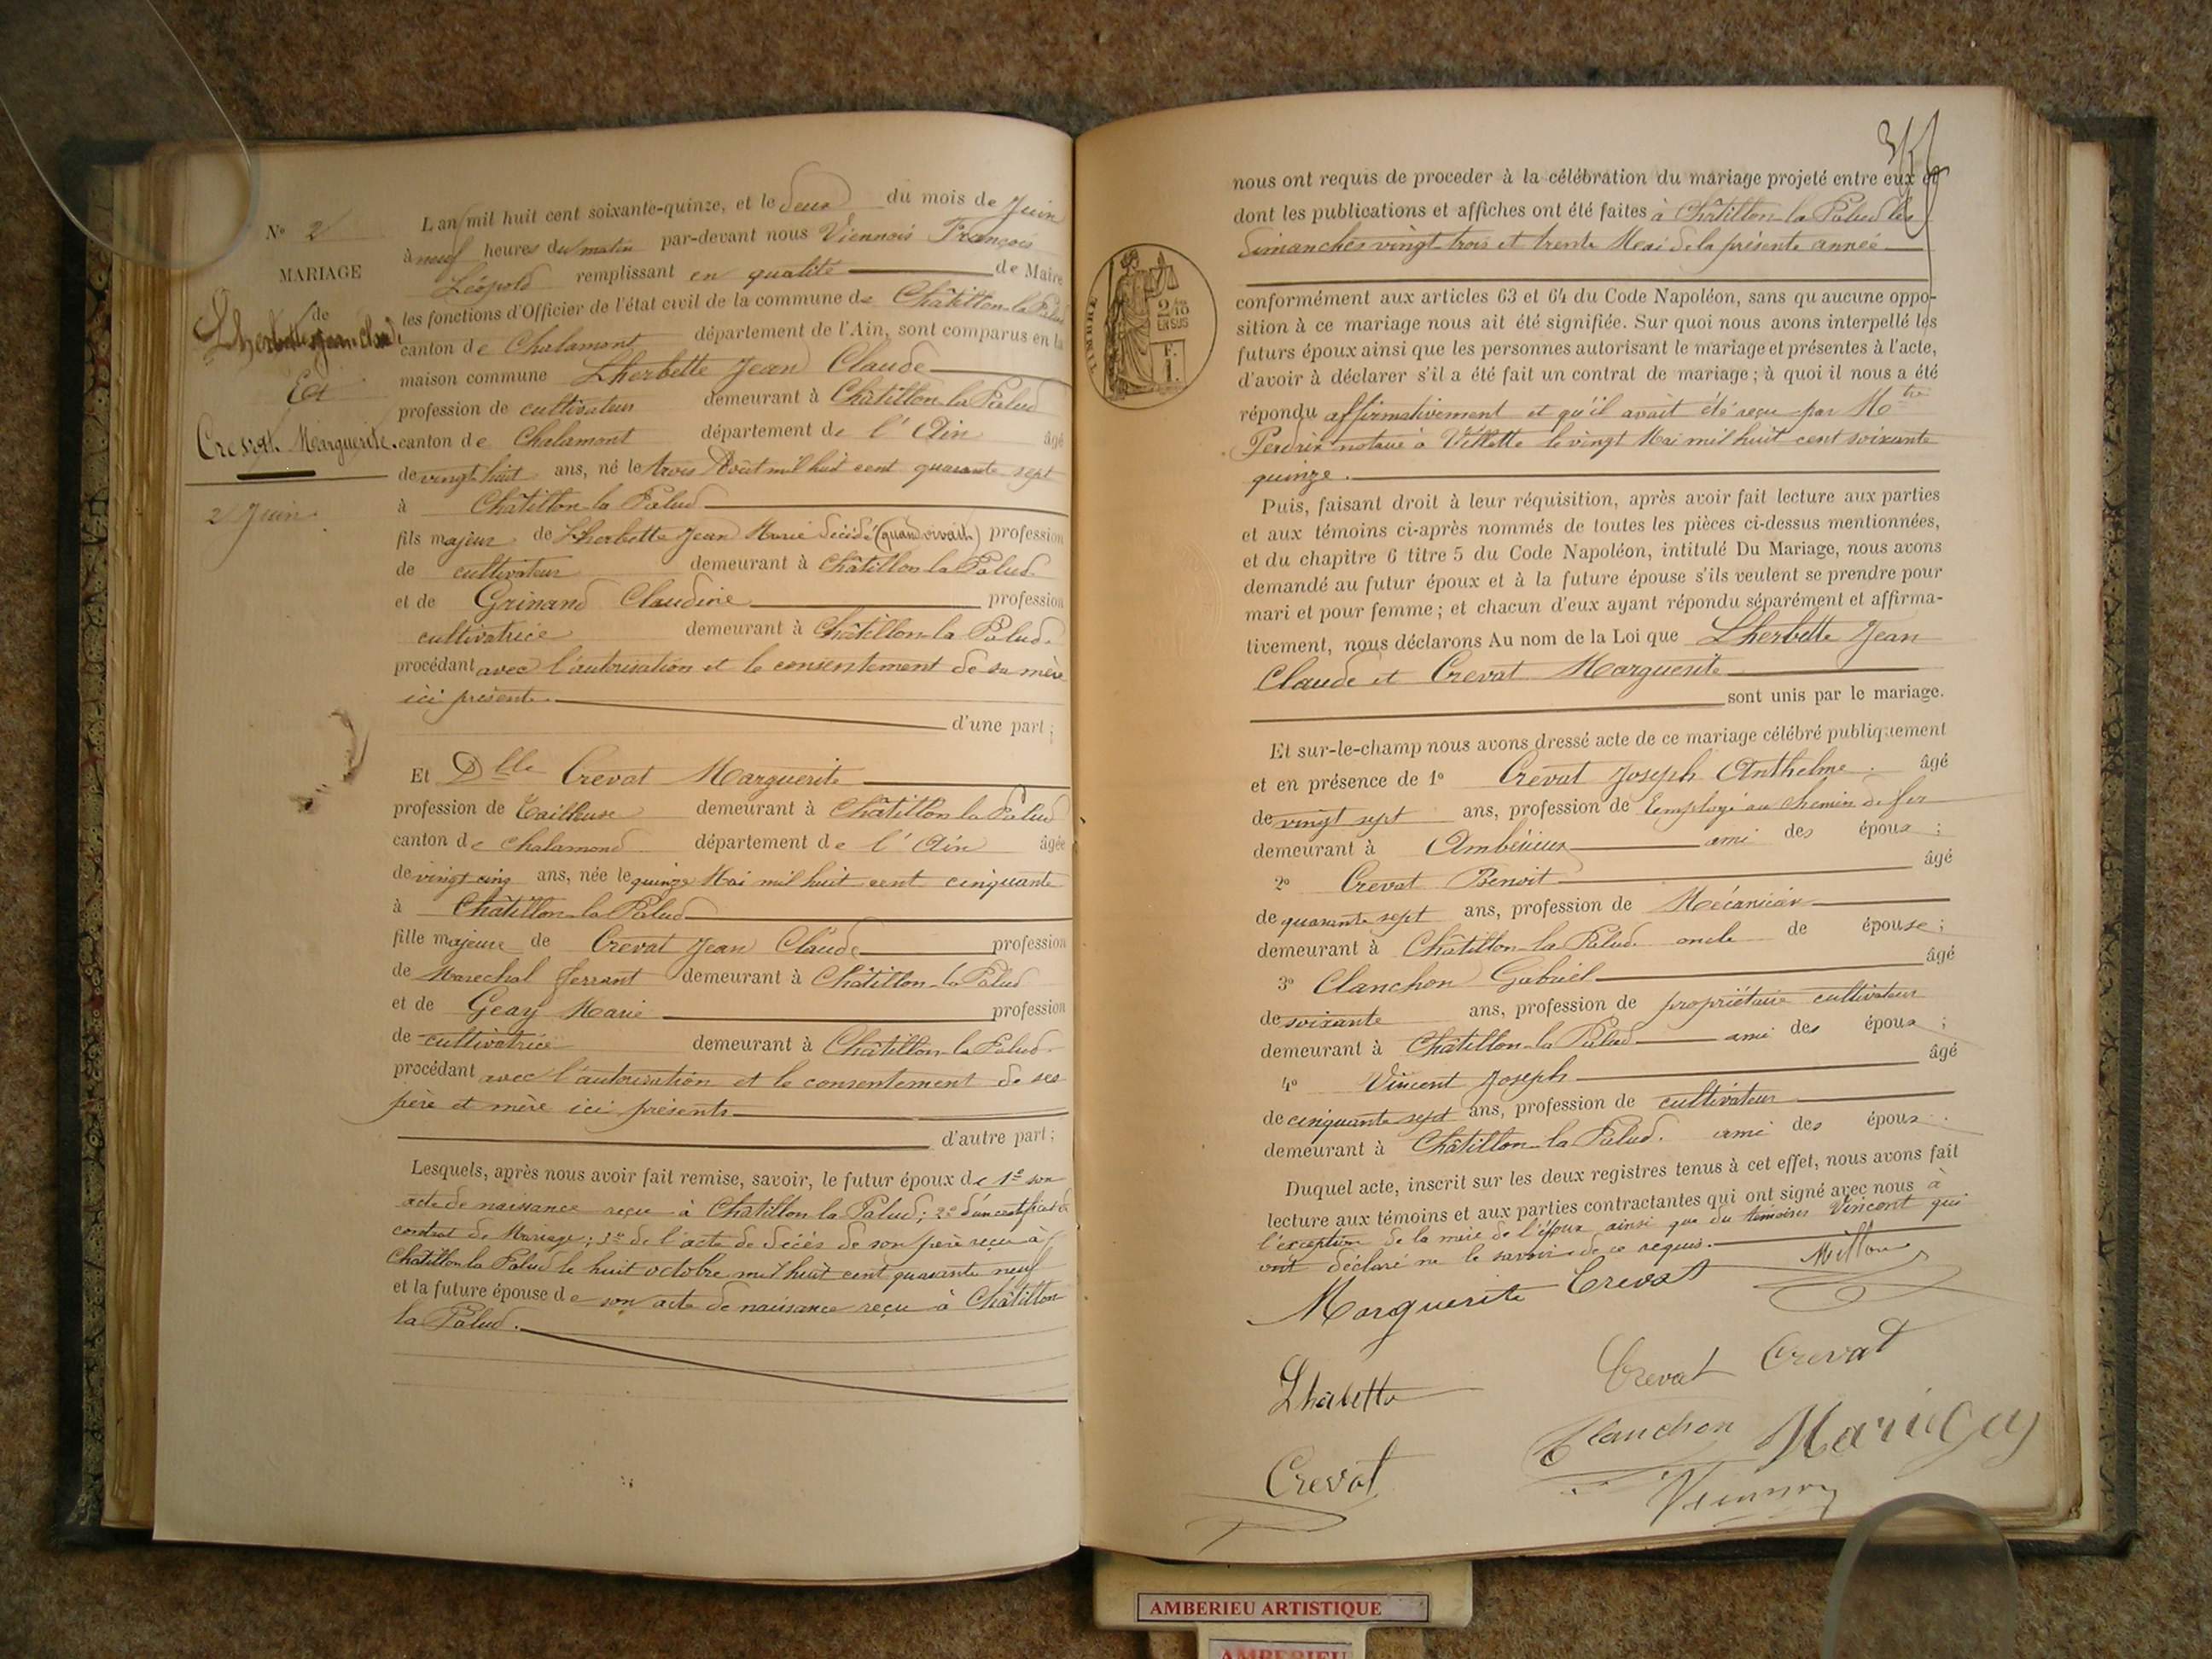 N° 2
MARIAGE
de
Lherbette Jean Claude
Et
Crevat Marguerite.
2 Juin.
L'an mil huit cent soixante-quinze, et le deux du mois de Juin
à neuf heures du matin par-devant nous Viennois François
Léopold remplissant en qualité de Maire
les fonctions d'Officier de l'état civil de la commune de Châtillon-la-Palud
canton de Chalamont département de l'Ain, sont comparus en la
maison commune Lherbette Jean Claude
profession de cultivateur demeurant à Châtillon-la-Palud
canton de Chalamont département de l'Ain âgé
de vingt huit ans, né le trois Août mil huit cent quarante sept
à Châtillon-la-Palud
fils majeur de Lherbette Jean Marie décédé (quand vivait) profession
de cultivateur demeurant à Châtillon-la-Palud.
et de Grinand Claudine profession
cultivatrice demeurant à Châtillon-la-Palud.
procédant avec l'autorisation et le consentement de sa mère
ici présente.
d'une part ;
Et Dlle Crevat Marguerite
profession de Tailleuse demeurant à Châtillon-la-Palud
canton de Chalamond département de l'Ain âgée
de vingt cinq ans, née le quinze Mai mil huit cent cinquante
à Châtillon-la-Palud
fille majeure de Crevat Jean Claude profession
de Marechal ferrant demeurant à Châtillon-la-Palud
et de Geay Marie profession
de cultivatrice demeurant à Châtillon-la-Palud.
procédant avec l'autorisation et le consentement de ses
père et mère ici présents
d'autre part ;
Lesquels, après nous avoir fait remise, savoir, le futur époux de 1° son
acte de naissance reçu à Châtillon la Palud ; 2° d'un certificat de
contrat de Mariage ; 3° de l'acte de décès de son père reçu à
Châtillon-la-Palud le huit octobre mil huit cent quarante neuf
et la future épouse de son acte de naissance reçu à Châtillon
la Palud.
nous ont requis de proceder à la célébration du mariage projeté entre eux et
dont les publications et affiches ont été faites à Châtillon-la-Palud les
dimanches vingt trois et trente Mai de la présente année
TIMBRE
2/10
EN SUS
F.
1.
conformément aux articles 63 et 64 du Code Napoléon, sans qu'aucune oppo-
sition à ce mariage nous ait été signifiée. Sur quoi nous avons interpellé les
futurs époux ainsi que les personnes autorisant le mariage et présentes à l'acte,
d'avoir à déclarer s'il a été fait un contrat de mariage ; à quoi il nous a été
répondu affirmativement et qu'il avait été reçu par Mtre
Perdrix notaire à Villette le vingt Mai mil huit cent soixante
quinze.
Puis, faisant droit à leur réquisition, après avoir fait lecture aux parties
et aux témoins ci-après nommés de toutes les pièces ci-dessus mentionnées,
et du chapitre 6 titre 5 du Code Napoléon, intitulé Du Mariage, nous avons
demandé au futur époux et à la future épouse s'ils veulent se prendre pour
mari et pour femme ; et chacun d'eux ayant répondu séparément et affirma-
tivement, nous déclarons Au nom de la Loi que Lherbette Jean
Claude et Crevat Marguerite
sont unis par le mariage.
Et sur-le-champ nous avons dressé acte de ce mariage célébré publiquement
et en présence de 1° Crevat Joseph Anthelme. âgé
de vingt sept ans, profession de Employé au chemin de fer
demeurant à Ambérieux ami des époux ;
2° Crevat Benoit âgé
de quarante sept ans, profession de Mécanicien
demeurant à Châtillon-la-Palud. oncle de épouse ;
3° Clanchon Gabriel âgé
de soixante ans, profession de propriétaire cultivateur
demeurant à Châtillon-la-Palud ami des époux ;
4° Vincent Joseph âgé
de cinquante sept ans, profession de cultivateur
demeurant à Châtillon-la-Palud. ami des époux.
Duquel acte, inscrit sur les deux registres tenus à cet effet, nous avons fait
lecture aux témoins et aux parties contractantes qui ont signé avec nous à
l'exception de la mère de l'époux ainsi que du témoins Vincent qui
ont déclaré ne le savoir de ce requis.
Marguerite Crevat Millon
Lherbette Crevat Crevat
Clanchon
Crevat
AMBERIEU ARTISTIQUE
AMBERIEU